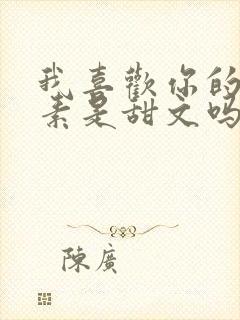 我喜歡你的
素是甜文吗
陳廣